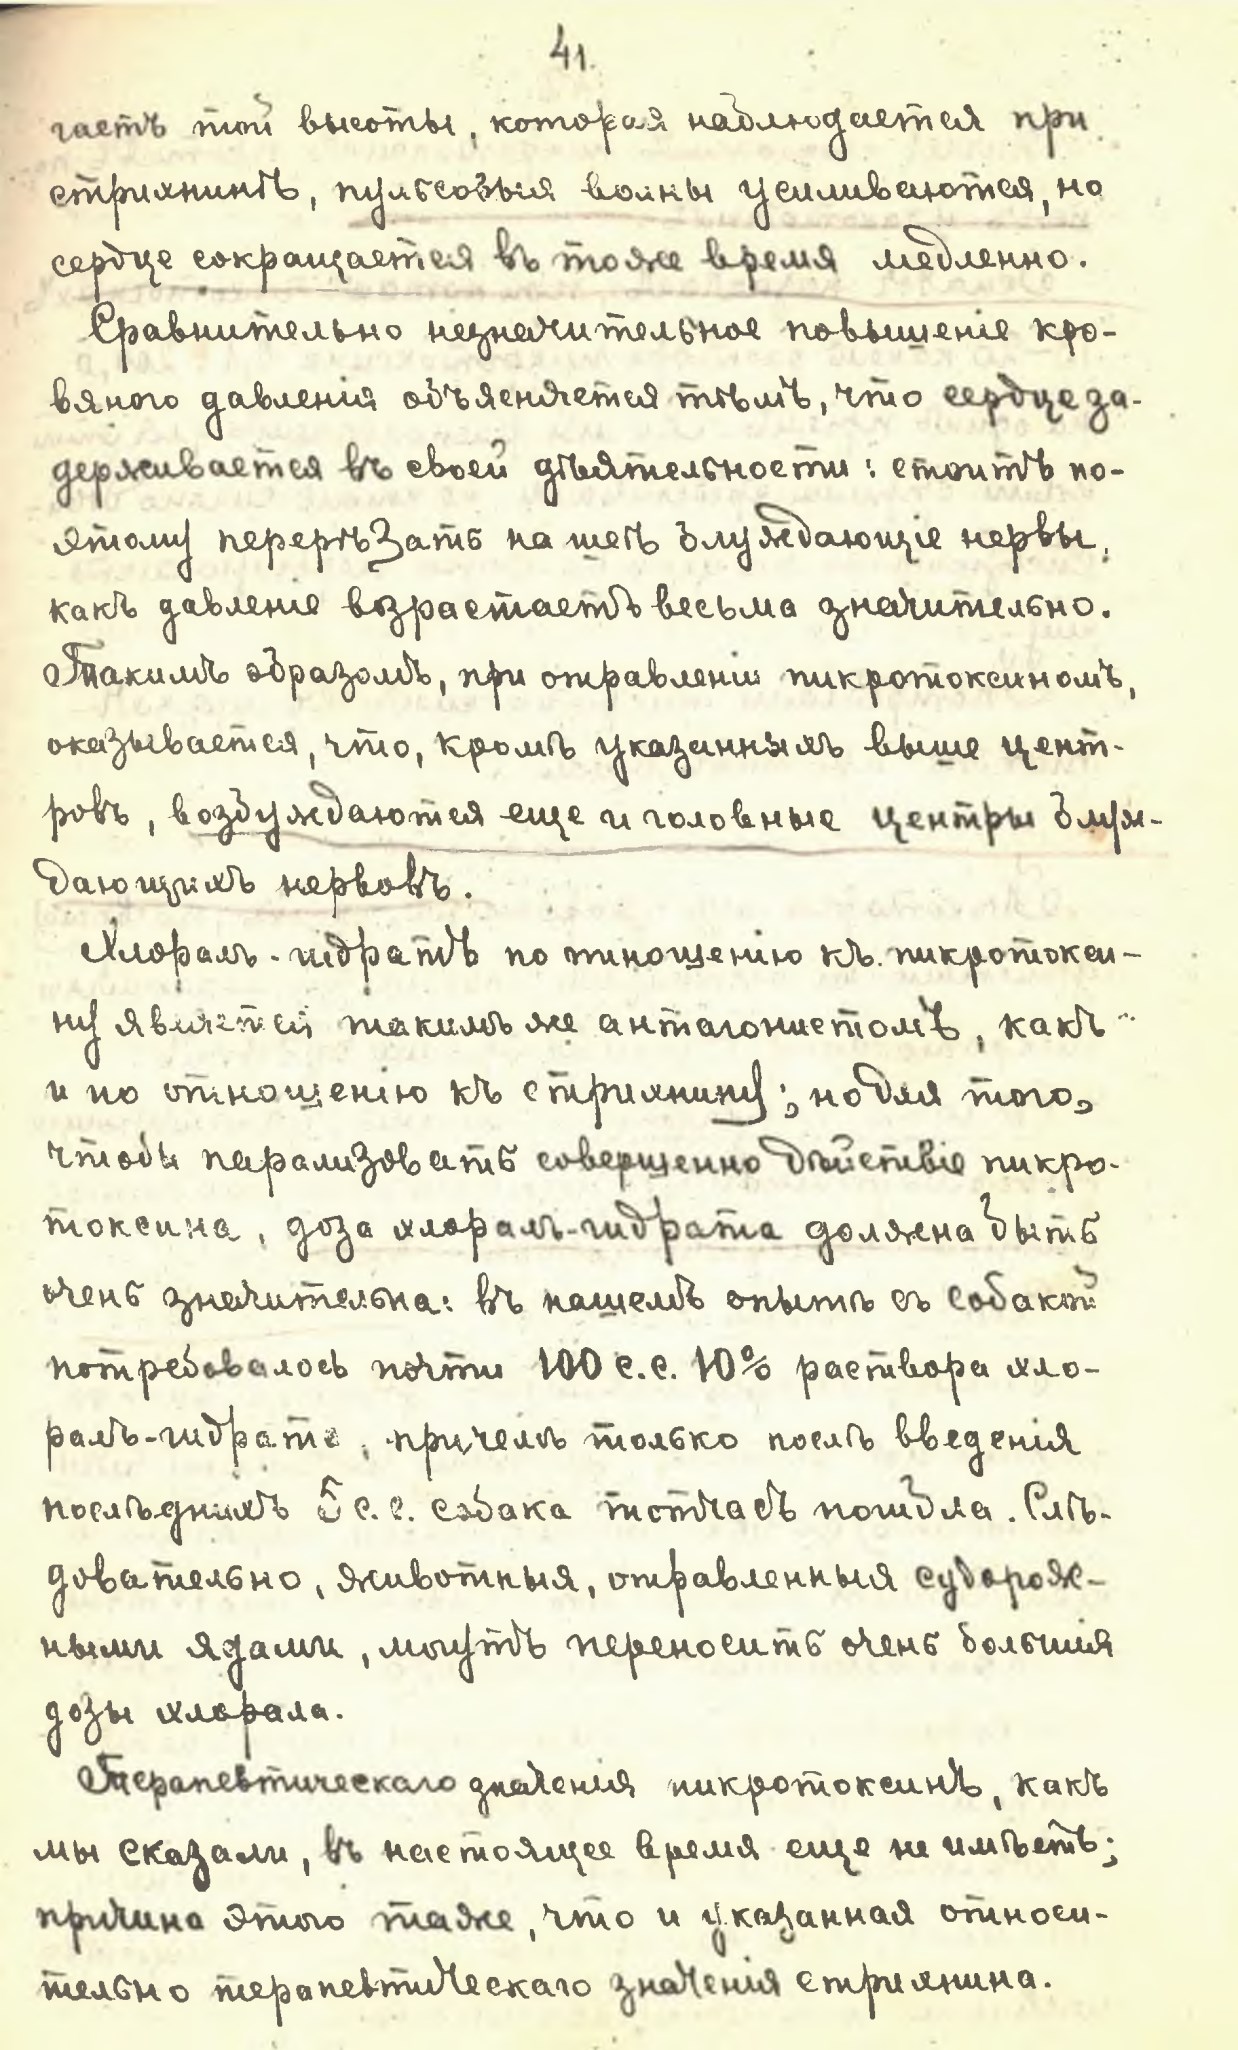 41.
гаетъ той высоты, которая наблюдается при
стрихнинѣ, пульсовыя волны усиливаются, но
сердце сокращается въ тоже время медленно.
Сравнительно незначительное повышеніе кро-
вяного давленія объясняется тѣмъ, что сердце за-
держивается въ своей дѣятельности: стоитъ по-
этому перерѣзать на шеѣ блуждающіе нервы,
какъ давленіе возрастаетъ весьма значительно.
Такимъ образомъ, при отравленіи пикротоксиномъ,
оказывается, что, кромѣ указанныхъ выше цент-
ровъ, возбуждаются еще и головные центры блуж-
дающихъ нервовъ.
Хлоралъ-гидратъ по отношенію къ пикротокси-
ну является такимъ же антагонистомъ, какъ
и по отношенію къ стрихнину; но для того,
чтобы парализовать совершенно дѣйствіе пикро-
токсина, доза хлоралъ-гидрата должна быть
очень значительна: въ нашемъ опытѣ съ собакой
потребовалось почти 100 с.с. 10% раствора хло-
ралъ-гидрата, причемъ только послѣ введенія
послѣднихъ 5 с.с. собака тотчасъ погибла. Слѣ-
довательно, животныя, отравленныя судорож-
ными ядами, могутъ переносить очень большія
дозы хлорала.
Терапевтическаго значенія пикротоксинъ, какъ
мы сказали, въ настоящее время еще не имѣетъ;
причина этого таже, что и указанная относи-
тельно терапевтическаго значенія стрихнина.